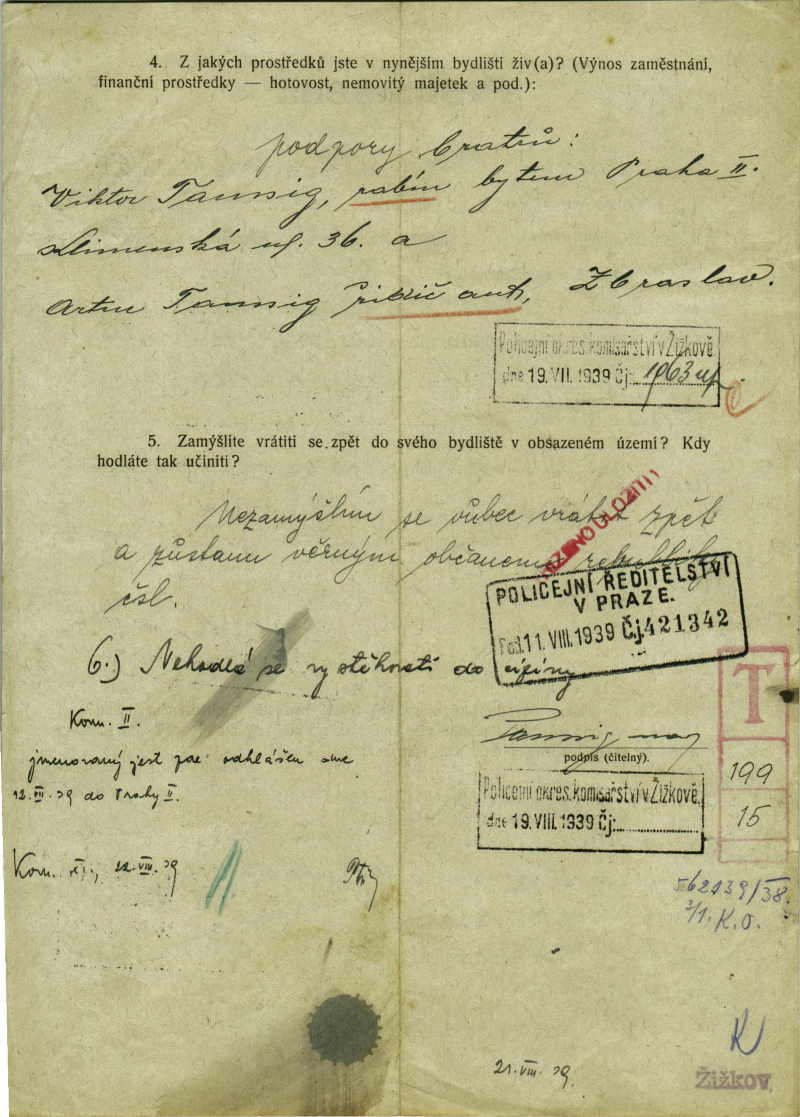 4. Z jakých prostředků jste v nynějším bydlišti živ(a)? (Výnos zaměstnání,
finanční prostředky — hotovost, nemovitý majetek a pod.):
podpory bratrů:
Viktor Taussig, rabín bytem Praha II.
Klimenská ul. 36. a
Artur Taussig, Zbraslav.
Policejní okres. komisařství v Žižkově.
dne 19. VII. 1939 Čj:
5. Zamýšlíte vrátiti se zpět do svého bydliště v obsazeném území? Kdy
hodláte tak učiniti?
Nezamýšlím se vůbec vrátit zpět
a zůstanu věrným občanem republiky
čsl.
POLICEJNÍ ŘEDITELSTVÍ
V PRAZE.
11. VIII. 1939 Čj. 421342
6.) Nehodlá se vystěhovati do ciziny
Kom. II.
jmenovaný jest zde odhlášen dne
12. VII. 39 do Prahy II.
Taussig
podpis (čitelný).
Policejní okres. komisařství v Žižkově.
dne 19. VIII. 1939 Čj:
T
199
15
Kom. 22. VIII. 39
62139/38.
3/1. K. O.
21. VIII. 39.
K
Žižkov